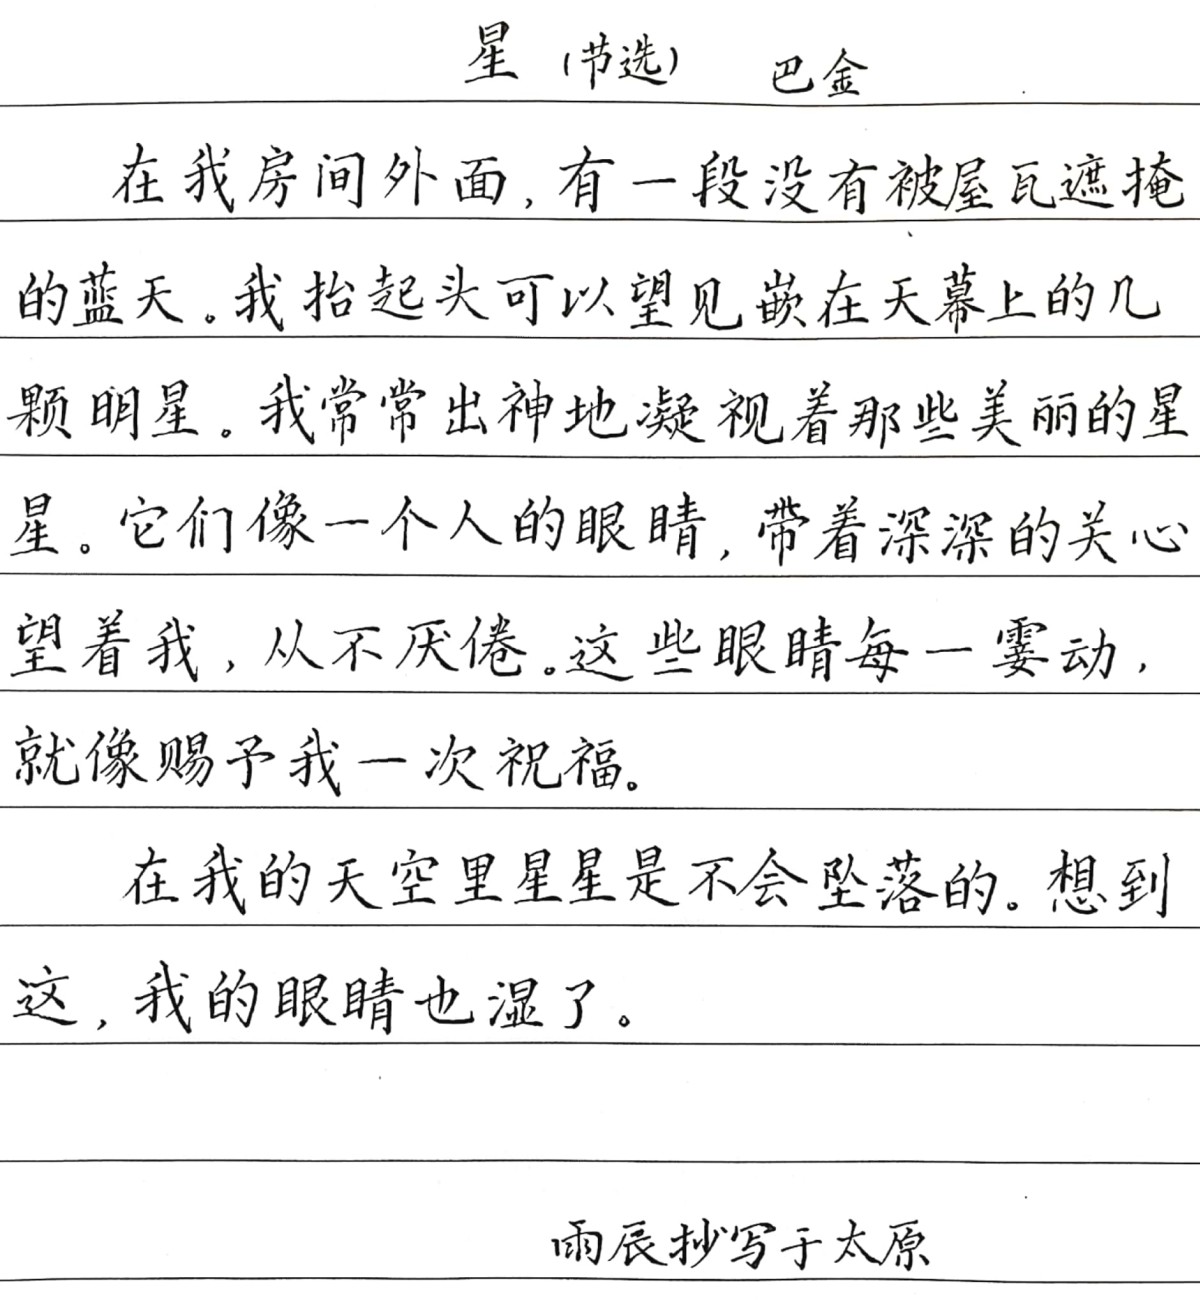 星（节选） 巴金
在我房间外面，有一段没有被屋瓦遮掩
的蓝天。我抬起头可以望见嵌在天幕上的几
颗明星。我常常出神地凝视着那些美丽的星
星。它们像一个人的眼睛，带着深深的关心
望着我，从不厌倦。这些眼睛每一霎动，
就像赐予我一次祝福。
在我的天空里星星是不会坠落的。想到
这，我的眼睛也湿了。
雨辰抄写于太原